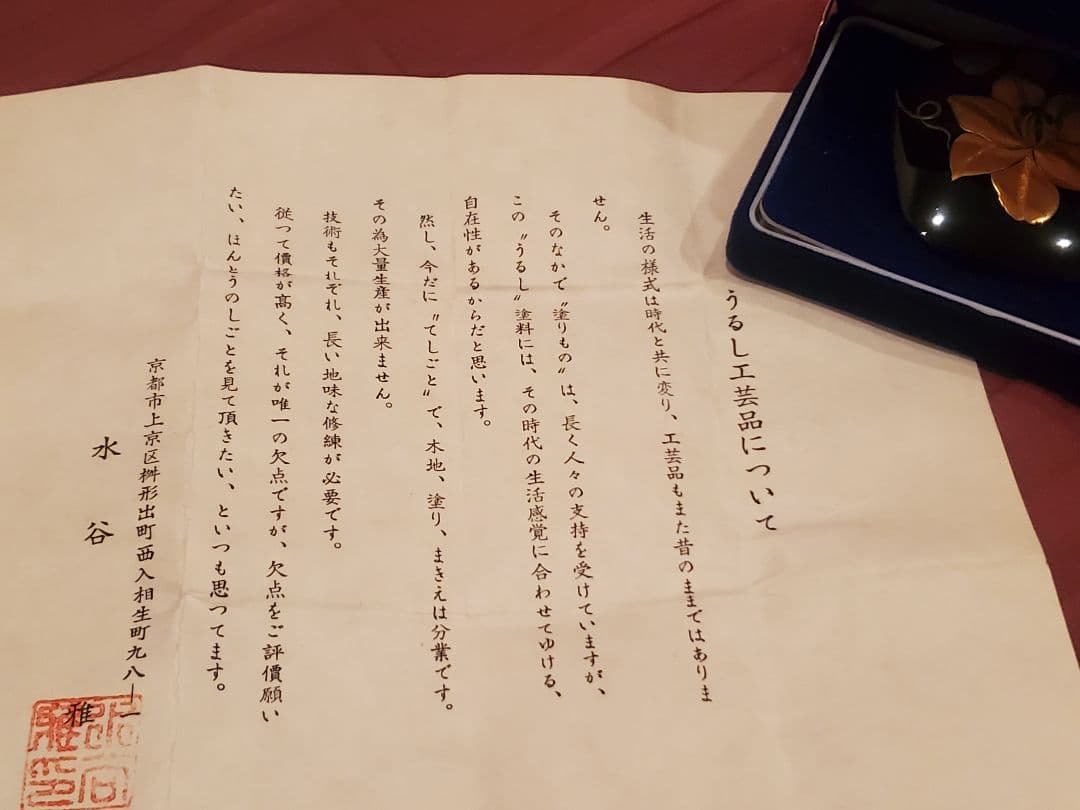 うるし工芸品について
生活の様式は時代と共に変り、工芸品もまた昔のままではありま
せん。
そのなかで〝塗りもの〟は、長く人々の支持を受けていますが、
この〝うるし〟塗料には、その時代の生活感覚に合わせてゆける、
自在性があるからだと思います。
然し、今だに〝てしごと〟で、木地、塗り、まきえは分業です。
その為大量生産が出来ません。
技術もそれぞれ、長い地味な修練が必要です。
従つて價格が高く、それが唯一の欠点ですが、欠点をご評價願い
たい、ほんとうのしごとを見て頂きたい、といつも思つてます。
京都市上京区桝形出町西入相生町九八―一
水谷 雅